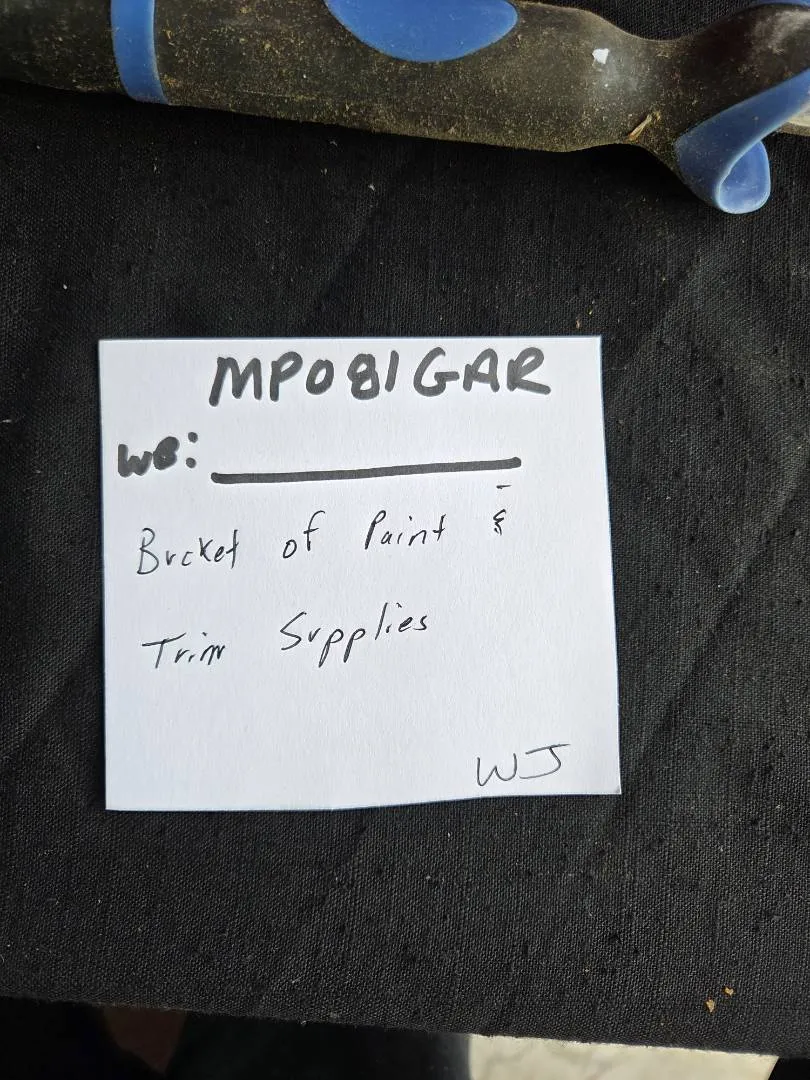 MP081GAR
WB:
Bucket of Paint &
Trim Supplies
WJ